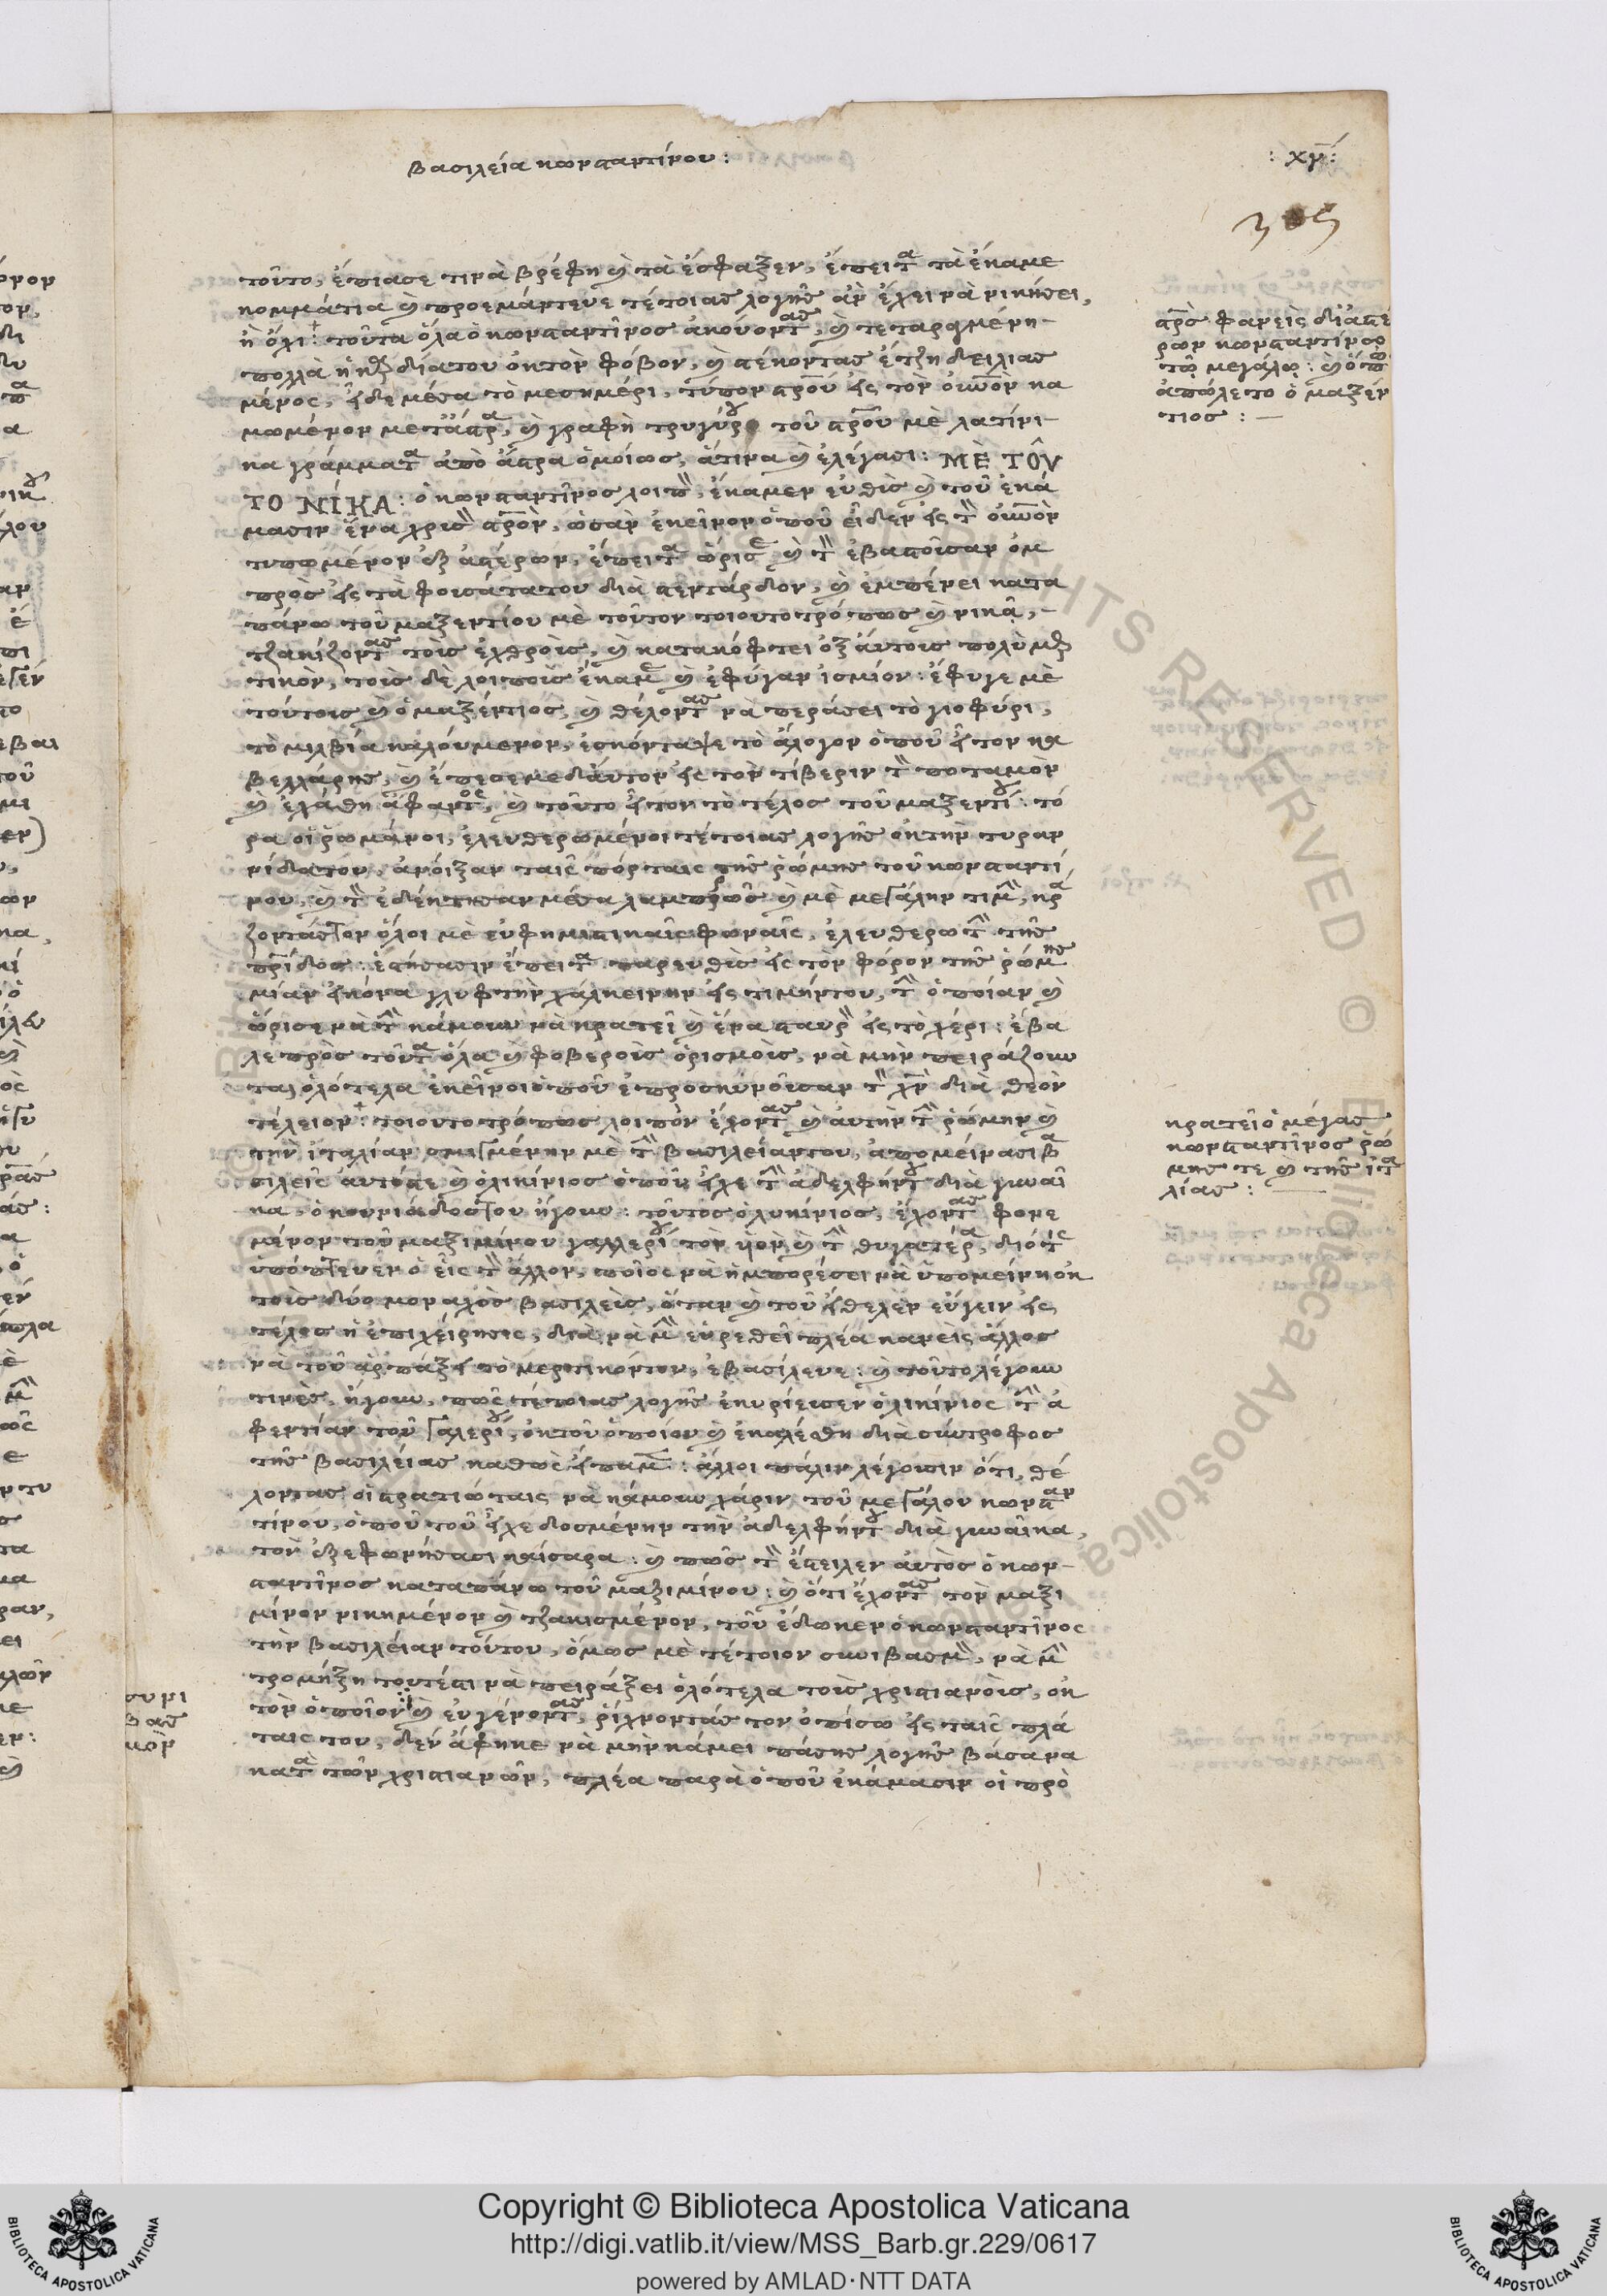 βασιλεία κωνσταντίνου :
: χγ :
305
τοῦτο, ἐπίασε τινὰ βρέφη καὶ τὰ ἔσφαξεν, ἔπειτα τὰ ἔκαμε
κομμάτια καὶ προεμάντευε τέτοιας λογῆς ἂν ἔχει νὰ νικήσει,
ἢ ὄχι: τοῦτα ὅλα ὁ κωνσταντῖνος ἀκούοντας, καὶ τεταραγμένη
πολλὰ ἡ καρδιάτου ἐκ τὸν φόβον, καὶ στέκοντας ἔτζη δειλιασ
μένος, εἶδε μέσα τὸ μεσημέρι, τύπον σταυροῦ εἰς τὸν οὐρανὸν κα
μωμένον μετἄστρα, καὶ γραφὴ τρυγύρου τοῦ σταυροῦ μὲ λατινι
κα γράμματα ἀπὸ ἄστρα ὁμοίως, ἅτινα καὶ ἐλέγασι: ΜΕ ΤΟῦ
ΤΟ ΝΊΚΑ: ὁ κωνσταντῖνος λοιπὸν, ἔκαμεν εὐθὶς καὶ τοῦ ἐκά
μασιν ἕνα χρισὸν σταυρὸν, ὡσὰν ἐκεῖνον ὁποῦ εἶδεν εἰς τὸν οὐρανὸν
τυπωμένον ἐξ ἀστέρων, ἔπειτα ὥρισε καὶ τὸν ἐβαστοῦσαν ἐμ
πρὸς εἰς τὰ φουσάτατου διὰ στεντάρδον, καὶ ἐμπένει κατα
πάνω τοῦ μαξεντίου μὲ τοῦτον τοιουτοτρόπως καὶ νικᾷ,
τζακίζοντας τοὺς ἐχθροὺς, καὶ κατακόφτει ἐξ αὐτοὺς πολὺ μερ
τικὸν, τοὺς δὲ λοιποὺς ἔκαμε καὶ ἐφύγαν ἰσμίον: ἔφυγε μὲ
τούτους καὶ ὁ μαξέντιος, καὶ θέλοντας νὰ περάσει τὸ γιοφύρι,
τὸ μιλβία καλούμενον, ἐσκόνταψε τὸ ἄλογον ὁποῦ ἦτον κα
βελλάρης, καὶ ἔπεσε μεδάυτον εἰς τὸν τίβεριν τὸν ποταμὸν
καὶ ἐχάθη ἄφαντος, καὶ τοῦτο ἦτον τὸ τέλος τοῦ μαξεντίου: τό
ρα οἱ ῥωμάνοι, ἐλευθερωμένοι τέτοιας λογῆς ἐκ τὴν τυραν
νίδατου, ἀνοίξαν ταῖς πόρταις τῆς ῥώμης τοῦ κωνσταντί
νου, καὶ τὸν ἐδέκτησαν μέσα λαμπρῶς καὶ μὲ μεγάλην τιμὴν, κρά
ζοντάςτον ὅλοι μὲ εὐφημιστικαῖς φωναῖς, ἐλευθερωτὴν τῆς
πατρίδος: ἐστήσασιν ἔπειτα παρευθὶς εἰς τὸν φόρον τῆς ῥώμης
μίαν εἰκόνα γλυφτὴν χάλκεινην εἰς τιμήντου, τὴν ὁποίαν καὶ
ὥρισε νὰ τὴν κάμουν νὰ κρατεῖ καὶ ἕνα σταυρὸν εἰς τὸ χέρι: ἐβα
λε πρὸς τοῦτα ὅλα καὶ φοβεροὺς ὁρισμοὺς, νὰ μὴν πειράζουν
ται ὁλότελα ἐκεῖνοι ὁποῦ ἐπροσκυνοῦσαν τὸν χριστὸν διὰ θεὸν
τέλειον: τοιουτοτρόπως λοιπὸν ἔχοντας καὶ αὐτὴν τὴν ῥώμην καὶ
τὴν ἰταλίαν σμιγμένην μὲ τὴν βασιλείαντου, ἀπομείνασι βα
σιλεῖς αὐτόςτε καὶ ὁ λικίνιος ὁποῦ εἶχε τὴν ἀδελφήντου διὰ γυναῖ
κα, ὁ κουνιάδοςτου ἤγουν: τοῦτος ὁ λυκίνιος, ἔχοντας φονε
μένον τοῦ μαξιμίνου γαλλερίου τὸν ὑὸν καὶ τὴν θυγατέρα, διότι
ὑπόπτευεν ὁ εἷς τὸν ἄλλον, ποῖος νὰ ἠμπορέσει νὰ ὑπομείνη ἐκ
τοὺς δύο μοναχὸς βασιλεὺς, ὅταν καὶ τοῦ ἤθελεν εὔγειν εἰς
τέλος ἡ ἐπιχείρησις, διὰ νὰ μὴν εὑρεθεῖ πλέα κανεὶς ἄλλος
νὰ τοῦ ἁρπάξει τὸ μερτικόντου, ἐβασίλευε: καὶ τοῦτο λέγουν
τινὲς, ἤγουν, πῶς τέτοιας λογῆς ἐκυρίευσεν ὁ λικίνιος τὴν ἀ
φεντίαν τοῦ γαλερίου, ἐκ τοῦ ὁποίου καὶ ἐκαλέσθη διὰ σύντροφος
τῆς βασιλείας καθὼς εἴπαμεν: ἄλλοι πάλιν λέγουσιν ὅτι, θέ
λοντας οἱ στρατιώταις νὰ κάμουν χάριν τοῦ μεγάλου κωνσταν
τίνου, ὁποῦ τοῦ εἶχε δοσμένην τὴν ἀδελφήντου διὰ γυναῖκα,
τὸν ἐξεφωνήσασι καίσαρα: καὶ πῶς τὸν ἔστειλεν αὐτὸς ὁ κων
σταντῖνος καταπάνω τοῦ μαξιμίνου: καὶ ὅτι ἔχοντας τὸν μαξι
μίνον νικημένον καὶ τζακισμένον, τοῦ ἔδωκεν ὁ κωνσταντῖνος
τὴν βασιλείαν τούτου, ὅμως μὲ τέτοιον συνιβασμὸν, νὰ μὴν
τρομήξη τουτέστι νὰ πειράξει ὁλότελα τοὺς χριστιανοὺς, ἐκ
τὸν ὁποῖον καὶ εὐγένοντας, ῥίχνοντάς τον ὀπίσω εἰς ταῖς πλά
ταις του, δὲν ἄφηκε νὰ μὴν κάμει πάσης λογῆς βάσανα
κατὰ τῶν χριστιανῶν, πλέα παρὰ ὁποῦ ἐκάμασιν οἱ πρὸ
σταυρὸς φανεὶς διἀστέ
ρων κωνσταντίνῳ
τῷ μεγάλῳ: καὶ ὅπου
ἀπώλετο ὁ μαξέν
τιος :
κρατεῖ ὁ μέγας
κωνσταντῖνος ῥώ
μης τε καὶ τῆς ἰτα
λίας :
συνι
βασ
μὸν
Copyright © Biblioteca Apostolica Vaticana
http://digi.vatlib.it/view/MSS_Barb.gr.229/0617
powered by AMLAD·NTT DATA